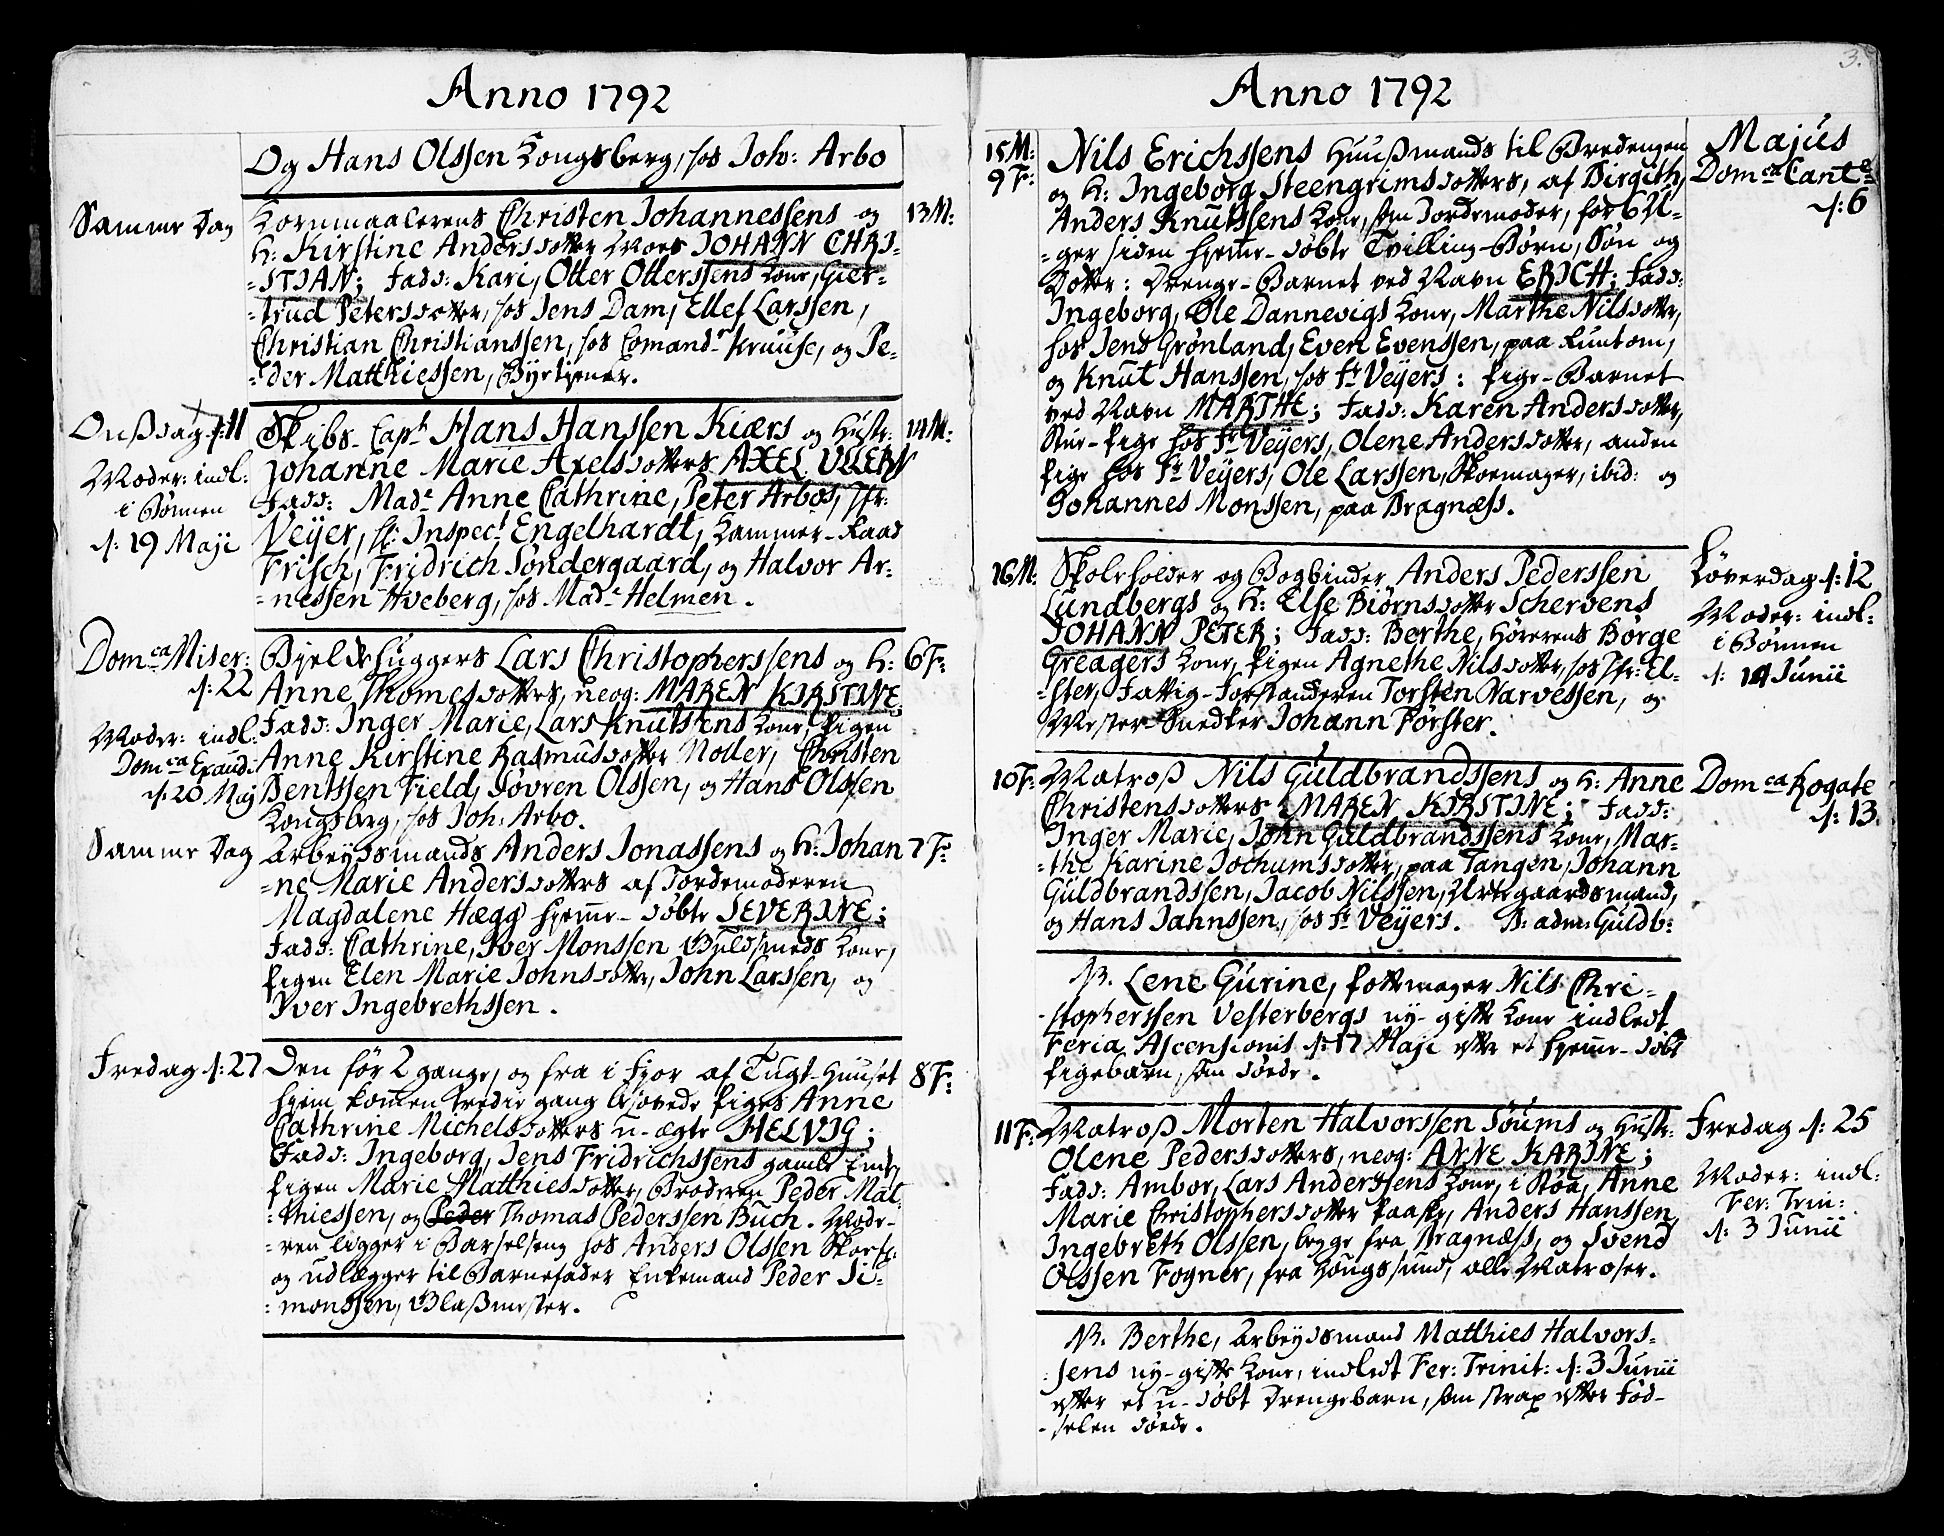 Anno 1792
Og Hans Olssen Kongsberg, hos Joh: Arbo
Samme Dag
Kornmaalerens Christen Johannessens og
13 M:
H: Kirstine Andersdotter Moes JOHANN CHRI-
-STIAN; Fadd: Kari, Otter Otterssens Kone, Gier-
-trud Petersdotter, hos Jens Dam, Ellef Larssen,
Christian Christianssen, hos Comand.r Kruuse, og Pe-
-der Matthiessen, Byetjener.
Onssdag d: 11
Skibs-Capt Hans Hanssen Kiærs og Hustr:
14 M:
Moder: indl:
Johanne Marie Axelsdotters AXEL ULLERN
i Bønnen
Fadd: Mad.e Anne Cathrine, Peter Arbos, Jfr:
d: 19 Maji
Veyer, Hr: Inspect Engelhardt, Kammer-Raad
Frisch, Fridrich Søndergaard, og Halvor Ar-
-nessen Hveberg, hos Mad.e Helmen.
Dom.ca Miser:
d: 22
Bjelkehuggers Lars Christopherssens og H:
6 F:
Anne Thomesdotters, neog: MAREN KIRSTINE,
Moder: indl:
Fadd: Inger Marie, Lars Knutssens Kone, Pigen
Dom.ca Exaudi
Anne Kirstine Rasmusdotter Moller, Christen
d: 20 Maj
Bentssen Field, Søvren Olssen, og Hans Olssen
Kongsberg, hos Joh: Arbo.
Samme Dag
Arbeydsmands Anders Jonassens og H: Johan
7 F:
-ne Marie Andersdotters af Jordemoderen
Magdalene Hægg hjemme-døbte SEVERINE;
Fadd: Cathrine, Iver Monssen Guldsmeds Kone,
Pigen Elen Marie Johnsdotter, John Larssen, og
Iver Ingebrethssen.
Fredag d: 27
Den før 2 gange, og fra i Fjor af Tugt-Huuset
8 F:
hjem komen tredie gang besovede Piges Anne
Cathrine Michelsdotters u-ægte HELVIG;
Fadd: Ingeborg, Jens Fridrichssens gamle Enke,
Pigen Marie Matthiesdotter, Broderen Peder Mat-
-thiessen, og Peder Thomas Pederssen Buch. Mode-
-ren ligger i Barselseng hos Anders Olssen Skoefl:
og udlægger til Barnefader Enkemand Peder Si-
-monssen, Glassmester.
3.
Anno 1792
15 M:
9 F:
Nils Erichssens Huussmands til Bredengen
Majus
Dom.ca Cant.e
d: 6
og H: Ingeborg Steengrimsdotters, af Birgith,
Anders Knutssens Kone, som Jordemoder, for 6 U-
-ger siden hjemme-døbte Tvilling-Børn, Søn og
Dotter: Drenge-Barnet ved Navn ERICH; Fadd:
Ingeborg, Ole Dannevigs Kone, Marthe Nilsdotter,
hos Jens Grønland, Even Evenssen, paa Runtom,
og Knut Hanssen, hos Fr Veyers: Pige-Barnet
ved Navn MARTHE; Fadd: Karen Andersdotter,
Stue-Pige hos Fr Veyers, Olene Andersdotter, anden
Pige hos Fr Veyers, Ole Larssen, Skoemager, ibid: og
Johannes Monssen, paa Bragnæss.
16 M:
Skoleholder og Bogbinder Anders Pederssen
Løverdag d: 12
Lundbergs og H: Else Biørnsdotter Schervens
Moder: indl:
JOHANN PETER; Fadd: Berthe, Hørerens Børge
i Bønnen
Greagers Kone, Pigen Agnethe Nilsdotter, hos Jfr: El-
d: 14 Junii
-ster, Fattig-Forstanderen Torsten Narvessen, og
Mester Snedker Johann Pørster.
10 F:
Matross Nils Guldbrandssens og H: Anne
Dom.ca Rogate
d: 13.
Christensdotters MAREN KIRSTINE; Fadd:
Inger Marie, John Guldbrandssens Kone, Mar-
-the Karine Jochumsdotter, paa Tangen, Johann
Guldbrandssen, Jacob Nilssen, Urtegaardsmand,
og Hans Jahnssen, hos Fr Veyers. B: adm: Guldb:
N. Lene Gurine, Pottemager Nils Chri-
-stopherssen Vesterbergs ny-gifte Kone indledt
Feria Ascensionis d: 17 Maji efter et hjemme-døbt
Pigebarn, som døede.
11 F:
Matross Morten Halvorssen Søums og Hustr:
Fredag d: 25
Olene Pedersdotters, neog: ANNE KARINE;
Moder: indl:
Fadd: Ambor, Lars Anderssens Kone, i Røa, Anne
Fer: Trin:
Marie Christophersdotter Paaske, Anders Hanssen,
d: 3 Junii
Ingebreth Olssen, begge fra Bragnæss, og Svend
Olssen Fogner, fra Kongssund, alle Matroser.
N. Berthe, Arbeydsmand Matthies Halvors-
-sens ny-gifte Kone, indledt Fer: Trinit: d: 3 Junii
efter et u-døbt Drengebarn, som strax efter Fød-
-selen døede.